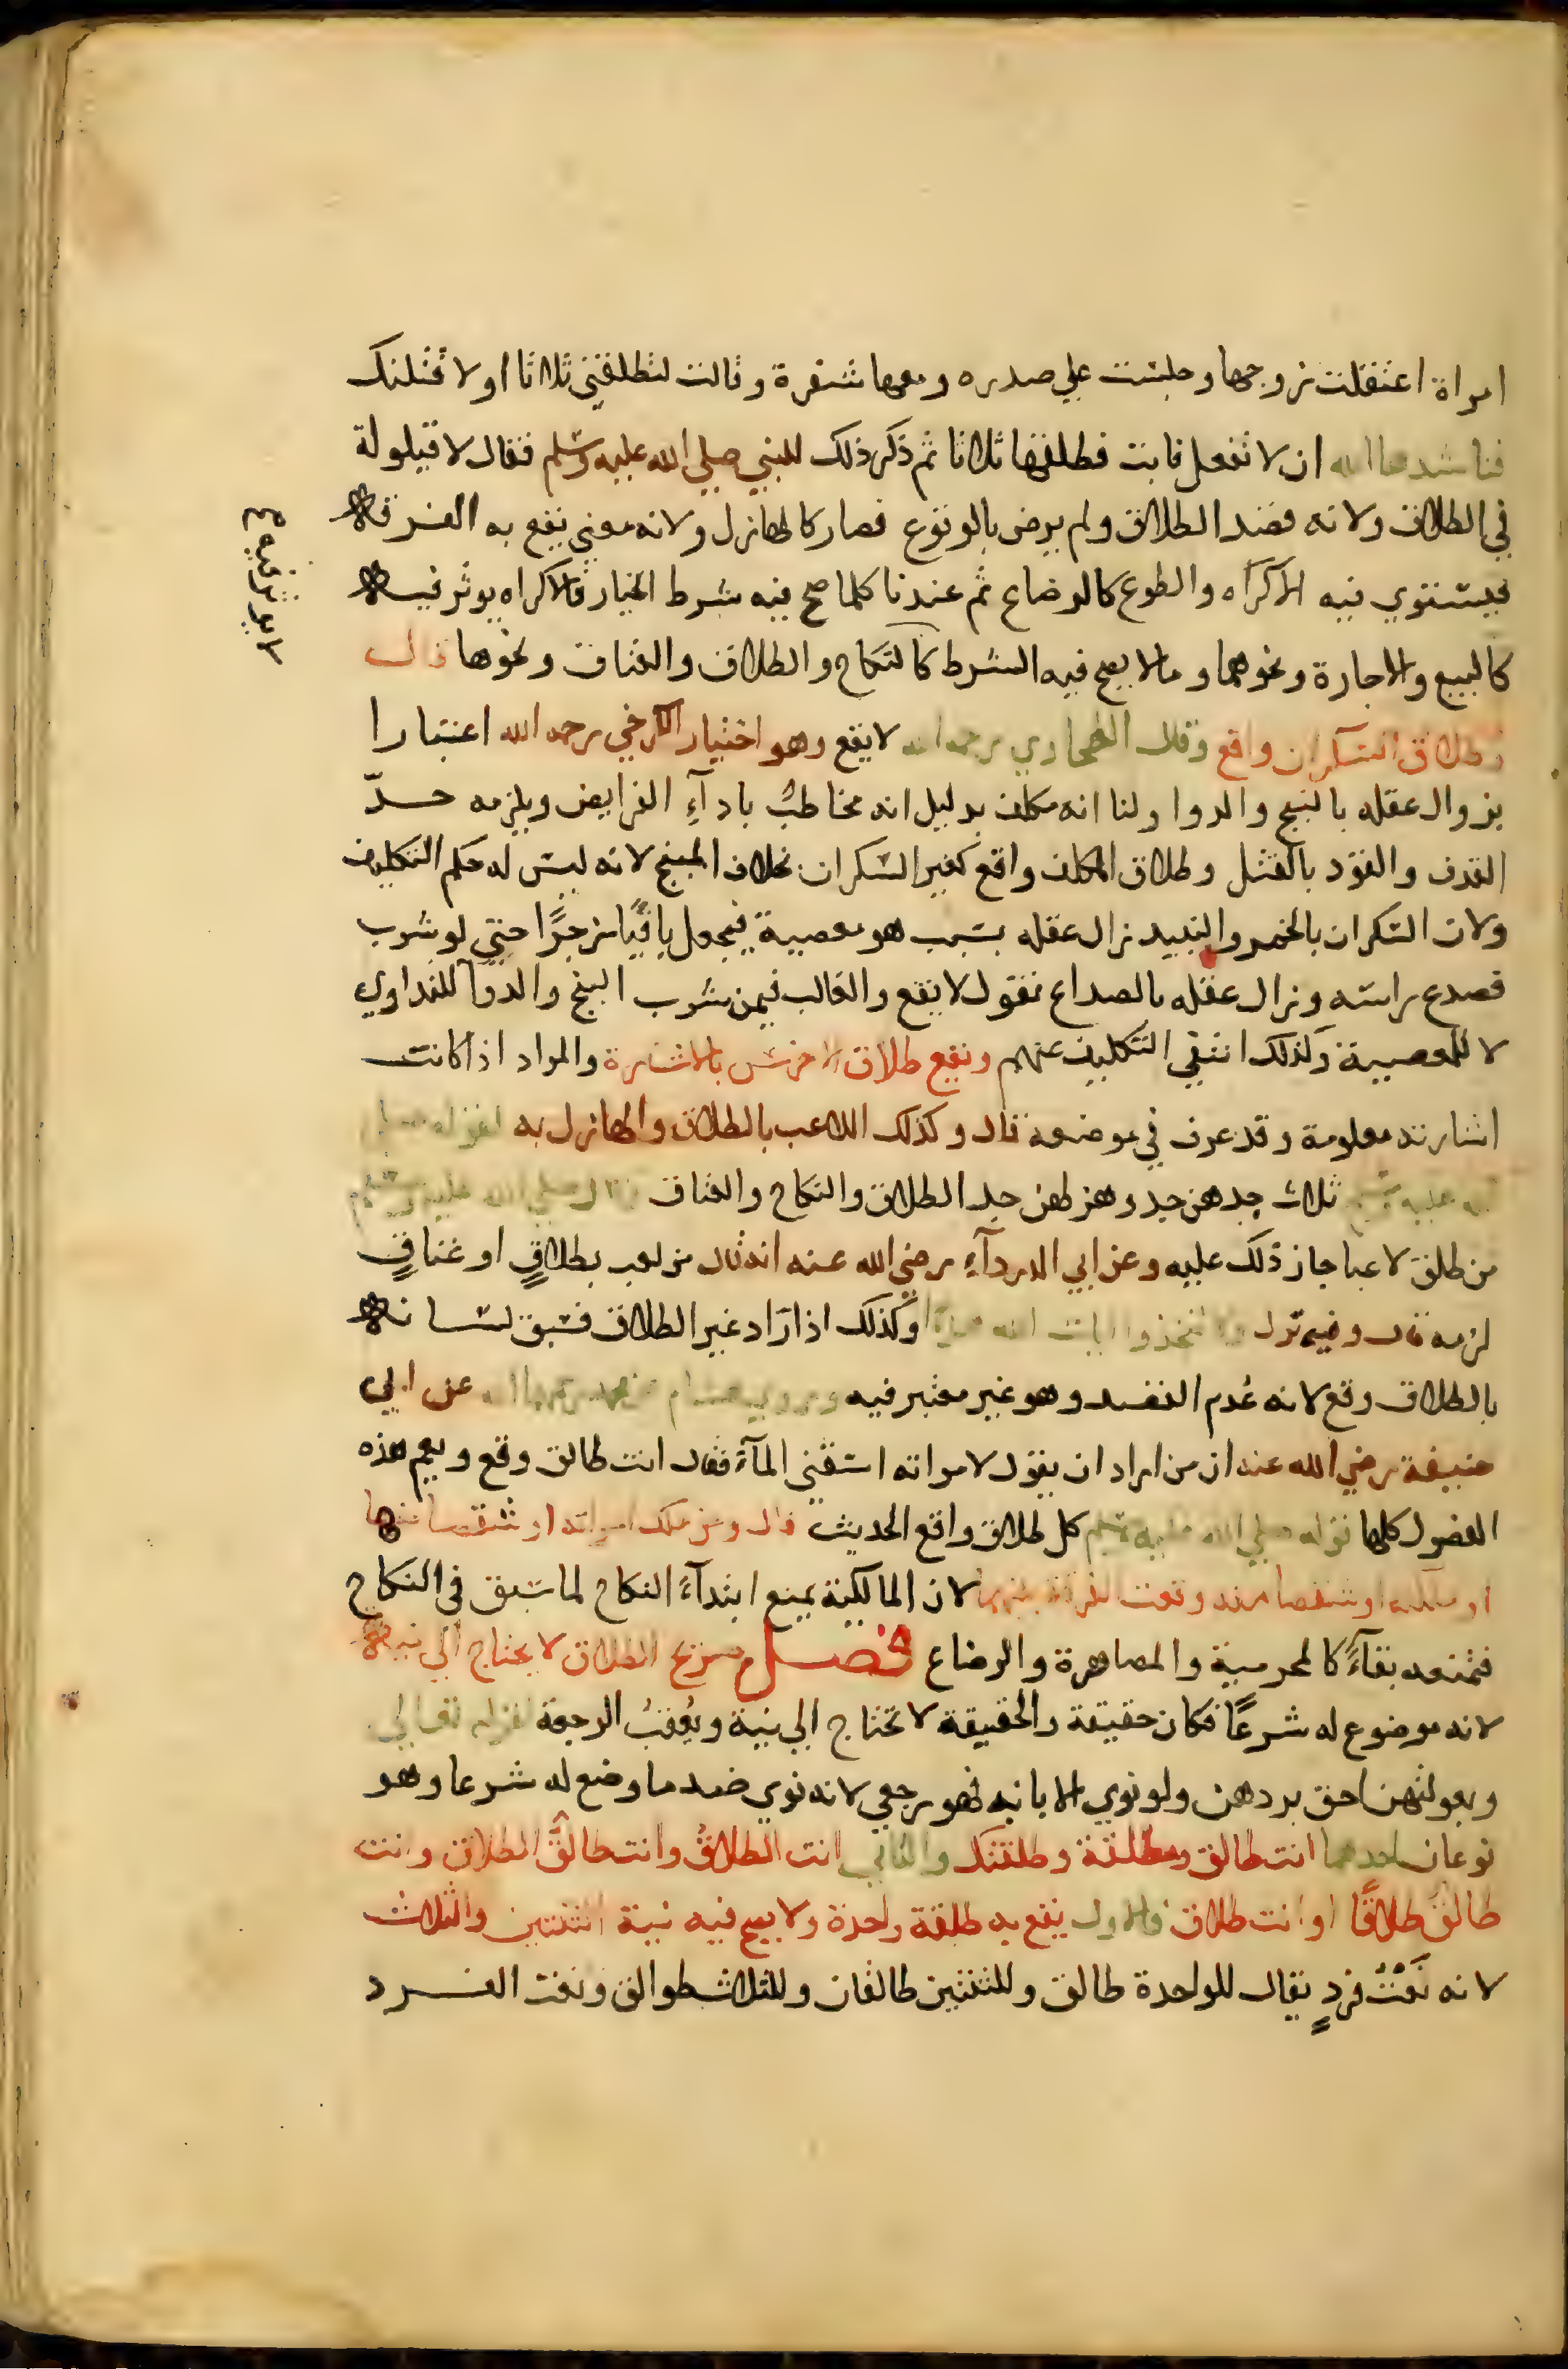 امراة اعتقلت زوجها وجلست علي صدره ومعها شفرة وقالت لتطلقني ثلاثا او لاقتلنك
فناشدها الله ان لا تفعل فابت فطلقها ثلاثا ثم ذكر ذلك للنبي صلي الله عليه وسلم فقال لا قيلولة
في الطلاق ولانه قصد الطلاق ولم يرض بالوقوع فصار كالهازل ولانه معني يقع به الفرقة
فيستوي فيه الاكراه والطوع كالرضاع ثم عندنا كلما صح فيه شرط الخيار فالاكراه يوثر فيه
كالبيع والاجارة ونحوهما وما لا يصح فيه الشرط كالنكاح والطلاق والعتاق ونحوها قال
وطلاق السكران واقع وقال الطحاوي رحمه الله لا يقع وهو اختيار الكرخي رحمه الله اعتبارا
بزوال عقله بالبنج والدوا ولنا انه مكلف بدليل انه مخاطبٌ باداءِ الفرايض ويلزمه حدّ
القذف والقود بالقتل وطلاق المكلف واقع كغير السكران بخلاف المبنج لانه ليس له حكم التكليف
ولان السكران بالخمر والنبيذ زال عقله بسبب هو معصية فيجعل باقيًا زجرًا حتي لو شرب
فصدع راسه وزال عقله بالصداع نقول لا يقع والغالب فيمن شرب البنج والدوآ للتداوي
لا للمعصية ولذلك انتفي التكليف عنهم ويقع طلاق الاخرس بالاشارة والمراد اذا كانت
اشارته معلومة وقد عرف في موضعه قال وكذلك اللاعب بالطلاق والهازل به لقوله صلي
الله عليه وسلم ثلاث جدهن جد وهزلهن جد الطلاق والنكاح والعتاق وقال صلي الله عليه وسلم
من طلق لاعبا جاز ذلك عليه وعن ابي الدرداءِ رضي الله عنه انه قال من لعب بطلاقٍ او عتاقٍ
لزمه قال وفيه نزل ولا تتخذوا ايات الله هزوًا وكذلك اذا اراد غير الطلاق فسبق لسانه
بالطلاق وقع لانه عُدم القصد وهو غير معتبر فيه وروي هشام عن محمد رحمهما الله عن ابي
حنيفة رضي الله عنه ان من اراد ان يقول لامراته اسقني المآءَ فقال انت طالق وقع ويعم هذه
الفصول كلها قوله صلي الله عليه وسلم كل طلاق واقع الحديث قال ومن ملك امراته او شقصا منها
او ملكته او شقصا منه وقعت الفرقة بينهما لان المالكية يمنع ابتدآءَ النكاح لما سبق في النكاح
فتمنعه بقآءً كالمحرمية والمصاهرة والرضاع فصل صريح الطلاق لا يحتاج الي نية
لانه موضوع له شرعًا فكان حقيقة والحقيقة لا تحتاج الي نية ويُعقبُ الرجعة لقوله تعالي
وبعولتهن احق بردهن ولو نوي الابانه فهو رجعي لانه نوي ضد ما وضع له شرعا وهو
نوعان احدهما انت طالق ومطلقة وطلقتك والثاني انت الطلاقُ وانت طالقٌ الطلاق وانت
طالقٌ طلاقًا او انت طلاق فالاول يقع به طلقة واحدة ولا يصح فيه نية الثنتين والثلاث
لانه نَعْتُ فردٍ يقال للواحدة طالق وللثنتين طالقان وللثلاث طوالق ونعت الفرد